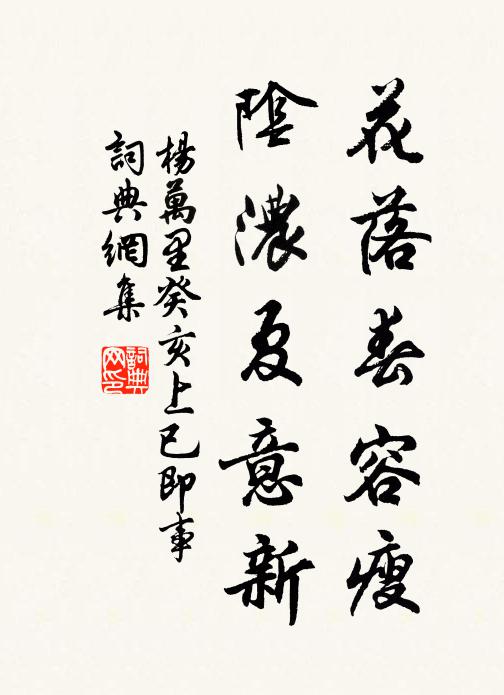 花落春容瘦
陰濃夏意新
楊萬里癸亥上巳即事
詞典網集
詞典
网印